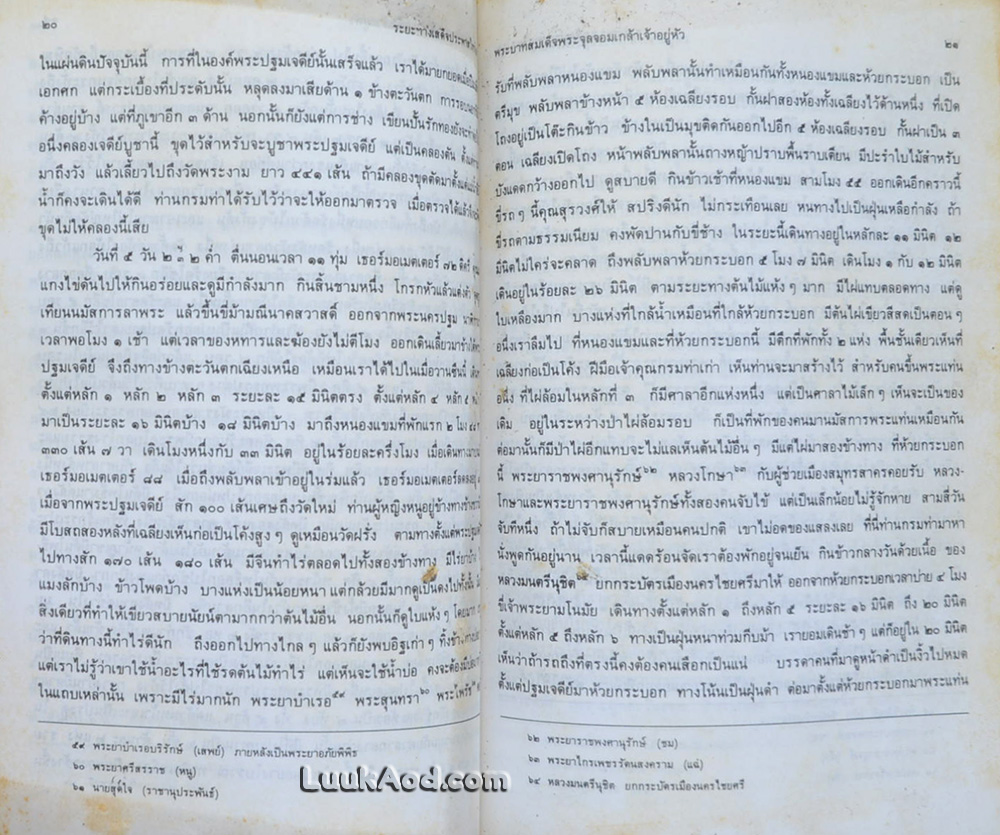 ๒๐
ระยะทางเสด็จประพาส
ในแผ่นดินปัจจุบันนี้ การที่ในองค์พระปฐมเจดีย์นั้นเสร็จแล้ว เราได้มายกยอดเมื่อปี
เอกศก แต่กระเบื้องที่ประดับนั้น หลุดลงมาเสียด้าน ๑ ข้างตะวันตก การรอบ
ค้างอยู่บ้าง แต่ที่ภูเขาอีก ๓ ด้าน นอกนั้นก็ยังแต่การช่าง เขียนปั้นรักทองยังจะ
อนึ่งคลองเจดีย์บูชานี้ ขุดไว้สำหรับจะบูชาพระปฐมเจดีย์ แต่เป็นคลองตัน
มาถึงวัง แล้วเลี้ยวไปถึงวัดพระงาม ยาว ๔๔๑ เส้น ถ้ามีคลองขุดตัดมาตั้งแต่
น้ำก็คงจะเดินได้ดี ท่านกรมท่าได้รับไว้ว่าจะให้ออกมาตรวจ เมื่อตรวจได้แล้ว
ขุดไม่ให้คลองนี้เสีย
วันที่ ๕ วัน ๒ ๓ ๒ ค่ำ ตื่นนอนเวลา ๑๑ ทุ่ม เธอร์มอเมตเตอร์ ๗๒ ดีกรี
แกงไข่ดันไปให้กินอร่อยและดูมีกำลังมาก กินสิ้นชามหนึ่ง โกรกหัวแล้วแต่งตัว
เทียนนมัสการลาพระ แล้วขึ้นขี่ม้ามณีนาคสวาสดิ์ ออกจากพระนครปฐม
เวลาพอโมง ๑ เช้า แต่เวลาของทหารและฆ้องยังไม่ตีโมง ออกเดินเลี้ยวมาข้าง
ปฐมเจดีย์ จึงถึงทางข้างตะวันตกเฉียงเหนือ เหมือนเราได้ไปในเมื่อวานซืนนี้
ตั้งแต่หลัก ๑ หลัก ๒ หลัก ๓ ระยะละ ๑๕ มินิตตรง ตั้งแต่หลัก ๔ หลัก ๕
มาเป็นระยะละ ๑๖ มินิตบ้าง ๑๘ มินิตบ้าง มาถึงหนองแขมที่พักแรก ๒ โมง
๓๓๐ เส้น ๗ วา เดินโมงหนึ่งกับ ๓๓ มินิต อยู่ในร้อยละครึ่งโมง เมื่อเดินทางมา
เธอร์มอเมตเตอร์ ๘๘ เมื่อถึงพลับพลาเข้าอยู่ในร่มแล้ว เธอร์มอเมตเตอร์
เมื่อจากพระปฐมเจดีย์ สัก ๑๐๐ เส้นเศษถึงวัดใหม่ ท่านผู้หญิงหนูอยู่ข้างทางข้าง
มีโบสถสองหลังที่เฉลียงเห็นก่อเป็นโค้งสูงๆ ดูเหมือนวัดฝรั่ง ตามทางตั้งแต่
ไปทางสัก ๑๗๐ เส้น ๑๘๐ เส้น มีจีนทำไร่ตลอดไปทั้งสองข้างทาง มีไร่ยาบ้าง
แมงลักบ้าง ข้าวโพดบ้าง บางแห่งเป็นน้อยหนา แต่กล้วยมีมากดูเป็นดงไปทั้งนั้น
สิ่งเดียวที่ทำให้เขียวสบายนัยน์ตามากกว่าต้นไม้อื่น นอกนั้นก็ดูใบแห้งๆ โดยมาก
ว่าที่ดินทางนี้ทำไร่ดีนัก ถึงออกไปทางไกลๆ แล้วก็ยังพบอิฐเก่าๆ ทิ้งข้าง
แต่เราไม่รู้ว่าเขาใช้น้ำอะไรที่ใช้รดต้นไม้ทำไร่ แต่เห็นจะใช้น้ำบ่อ คงจะต้องมี
ในแถบเหล่านั้น เพราะมีไร่มากนัก พระยาบำเรอ๕๙ พระสุนทรา๖๐
๕๙ พระยาบำเรอบริรักษ์ (เสพย์) ภายหลังเป็นพระยาอภัยพิพิธ
๖๐ พระยาศรีสรราช (หนู)
๖๑ นายสุดใจ (ราชานุประพันธ์)
พระบาทสมเด็จพระจุลจอมเกล้าเจ้าอยู่หัว
๒๑
รับที่พลับพลาหนองแขม พลับพลานั้นทำเหมือนกันทั้งหนองแขมและห้วยกระบอก เป็น
ตรีมุข พลับพลาข้างหน้า ๕ ห้องเฉลียงรอบ กั้นฝาสองห้องทั้งเฉลียงไว้ด้านหนึ่ง ที่เปิด
โถงอยู่เป็นโต๊ะกินข้าว ข้างในเป็นมุขติดกันออกไปอีก ๕ ห้องเฉลียงรอบ กั้นฝาเป็น ๓
ตอน เฉลียงเปิดโถง หน้าพลับพลานั้นถางหญ้าปราบพื้นราบเตียน มีปะรำใบไม้สำหรับ
บังแดดกว้างออกไป ดูสบายดี กินข้าวเช้าที่หนองแขม สามโมง ๕๕ ออกเดินอีกคราวนี้
ขี่รถๆ นี้คุณสุรวงศ์ให้ สปริงดีนัก ไม่กระเทือนเลย หนทางไปเป็นฝุ่นเหลือกำลัง ถ้า
ขี่รถตามธรรมเนียม คงพัดปานกับขี่ช้าง ในระยะนี้เดินทางอยู่ในหลักละ ๑๑ มินิต ๑๒
มินิตไม่ใคร่จะคลาด ถึงพลับพลาห้วยกระบอก ๕ โมง ๗ มินิต เดินโมง ๑ กับ ๑๒ มินิต
เดินอยู่ในร้อยละ ๒๖ มินิต ตามระยะทางต้นไม้แห้งๆ มาก มีไผ่แทบตลอดทาง แต่ดู
ใบเหลืองมาก บางแห่งที่ใกล้น้ำเหมือนที่ใกล้ห้วยกระบอก มีต้นไผ่เขียวสีสดเป็นตอนๆ
อนึ่งเราลืมไป ที่หนองแขมและที่ห้วยกระบอกนี้ มีตึกที่พักทั้ง ๒ แห่ง พื้นชั้นเดียวเห็นที่
เฉลียงก่อเป็นโค้ง ฝีมือเจ้าคุณกรมท่าเก่า เห็นท่านจะมาสร้างไว้ สำหรับคนขึ้นพระแท่น
อนึ่ง ที่ไผ่ล้อมในหลักที่ ๓ ก็มีศาลาอีกแห่งหนึ่ง แต่เป็นศาลาไม้เล็กๆ เห็นจะเป็นของ
เดิม อยู่ในระหว่างป่าไผ่ล้อมรอบ ก็เป็นที่พักของคนมานมัสการพระแท่นเหมือนกัน
ต่อมานั้นก็มีป่าไผ่อีกแทบจะไม่แลเห็นต้นไม้อื่นๆ มีแต่ไผ่มาสองข้างทาง ที่ห้วยกระบอก
นี้ พระยาราชพงศานุรักษ์๖๒ หลวงโกษา๖๓ กับผู้ช่วยเมืองสมุทรสาครคอยรับ หลวง-
โกษาและพระยาราชพงศานุรักษ์ทั้งสองคนจับไข้ แต่เป็นเล็กน้อยไม่รู้จักหาย สามสี่วัน
จับทีหนึ่ง ถ้าไม่จับก็สบายเหมือนคนปกติ เขาไม่อดของแสลงเลย ที่นี่ท่านกรมท่ามาหา
นั่งพูดกันอยู่นาน เวลานี้แดดร้อนจัดเราต้องพักอยู่จนเย็น กินข้าวกลางวันด้วยเนื้อ ของ
หลวงมนตรีนุชิต๖๔ ยกกระบัตรเมืองนครไชยศรีมาให้ ออกจากห้วยกระบอกเวลาบ่าย ๔ โมง
ขี่เจ้าพระยามโนมัย เดินทางตั้งแต่หลัก ๑ ถึงหลัก ๕ ระยะละ ๑๖ มินิต ถึง ๒๐ มินิต
ตั้งแต่หลัก ๕ ถึงหลัก ๖ ทางเป็นฝุ่นหนาท่วมกีบม้า เรายอมเดินช้าๆ แต่ก็อยู่ใน ๒๐ มินิต
เห็นว่าถ้ารถถึงที่ตรงนี้คงต้องคนเสือกเป็นแน่ บรรดาคนที่มาดูหน้าดำเป็นงิ้วไปหมด
ตั้งแต่ปฐมเจดีย์มาห้วยกระบอก ทางโน้นเป็นฝุ่นดำ ต่อมาตั้งแต่ห้วยกระบอกมาพระแท่น
๖๒ พระยาราชพงศานุรักษ์ (ชม)
๖๓ พระยาไกรเพชรรัตนสงคราม (แฉ่)
๖๔ หลวงมนตรีนุชิต ยกกระบัตรเมืองนครไชยศรี
LuukAod.com